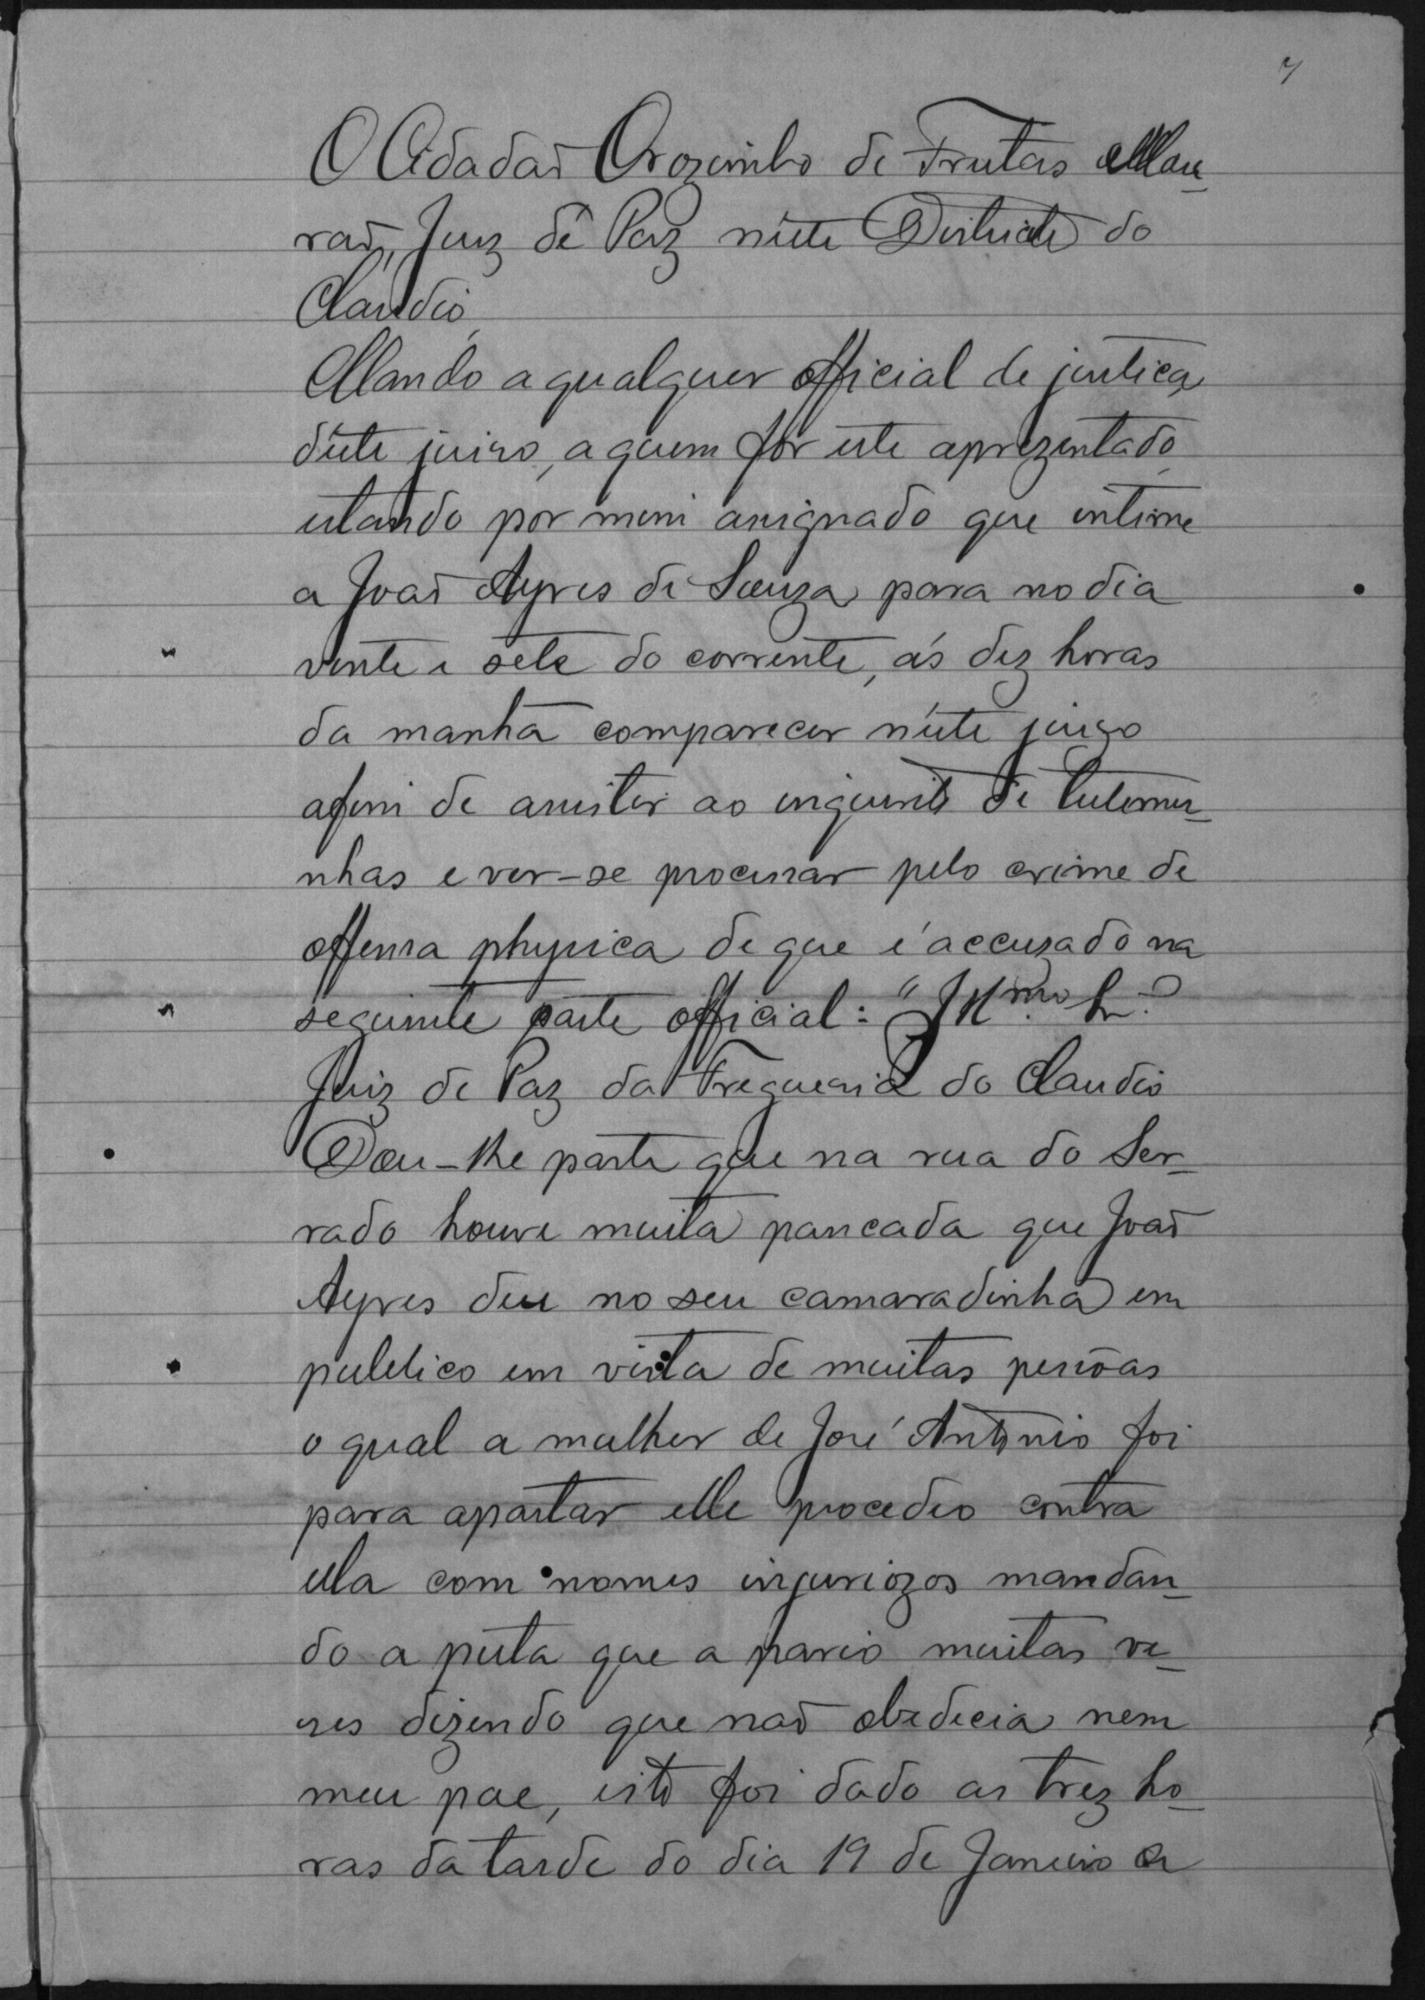 7
O Cidadaõ Orozimbo de Freitas Mou-
raõ, Juiz de Paz n'éste Districto do
Claudio,
Mando a qualquer official de justiça
d'éste juizo, a quem fôr este aprezentado
estando por mim assignado que intime
a Joaõ Ayres de Souza, para no dia
vinte e sete do corrente, ás dez horas
da manhã comparecer n'éste juizo
afim de assistir ao inquerito de testemu-
nhas e ver-se processar pelo crime de
offensa physica de que é accuzado na
seguinte parte official: "Illmo. Snr.
Juiz de Paz da Freguezia do Claudio
Dou-lhe parte que na rua do Ser-
rado houve muita pancada que Joaõ
Ayres deu no seu camaradinha em
publico em vista de muitas pessôas
o qual a mulher de José Antonio foi
para apartar elle procedeo contra
ella com nomes injuriozos mandan-
do a puta que a pario muitas ve-
ses dizendo que naõ obedecia nem
meu pae, isto foi dado as trez ho-
ras da tarde do dia 19 de Janeiro a